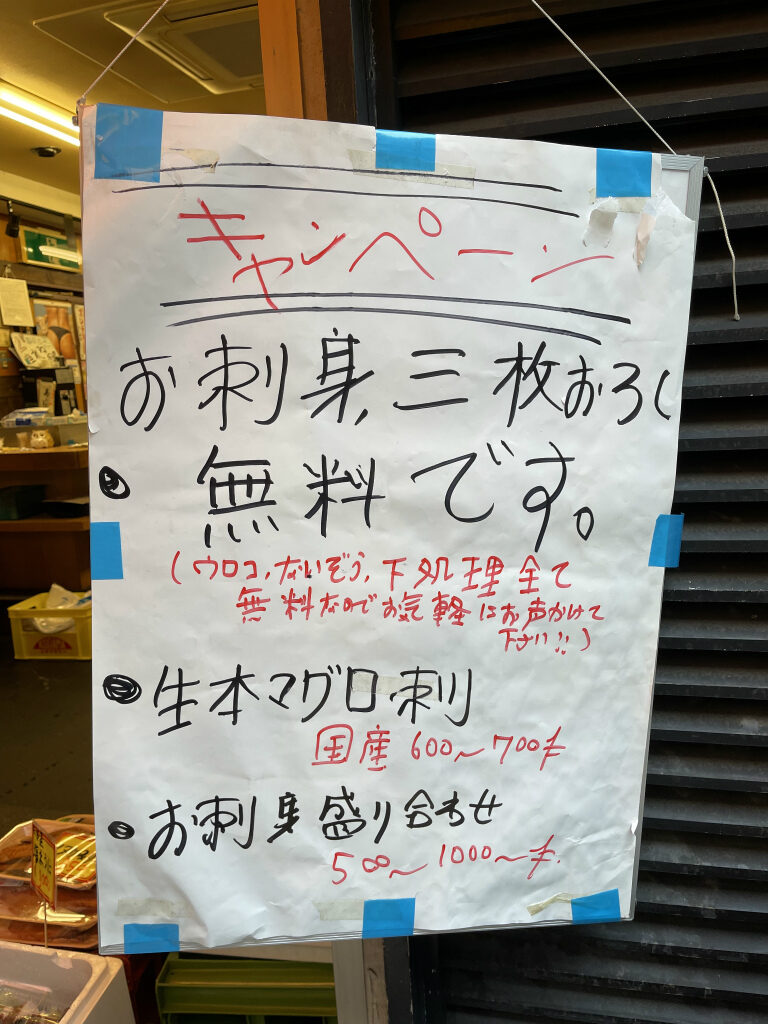 キャンペーン
お刺身、三枚おろし
● 無料です。
(ウロコ、ないぞう、下処理全て
無料なのでお気軽にお声かけて
下さい!!)
● 生本マグロ刺
国産 600〜700キ
● お刺身盛り合わせ
500〜1000〜キ.